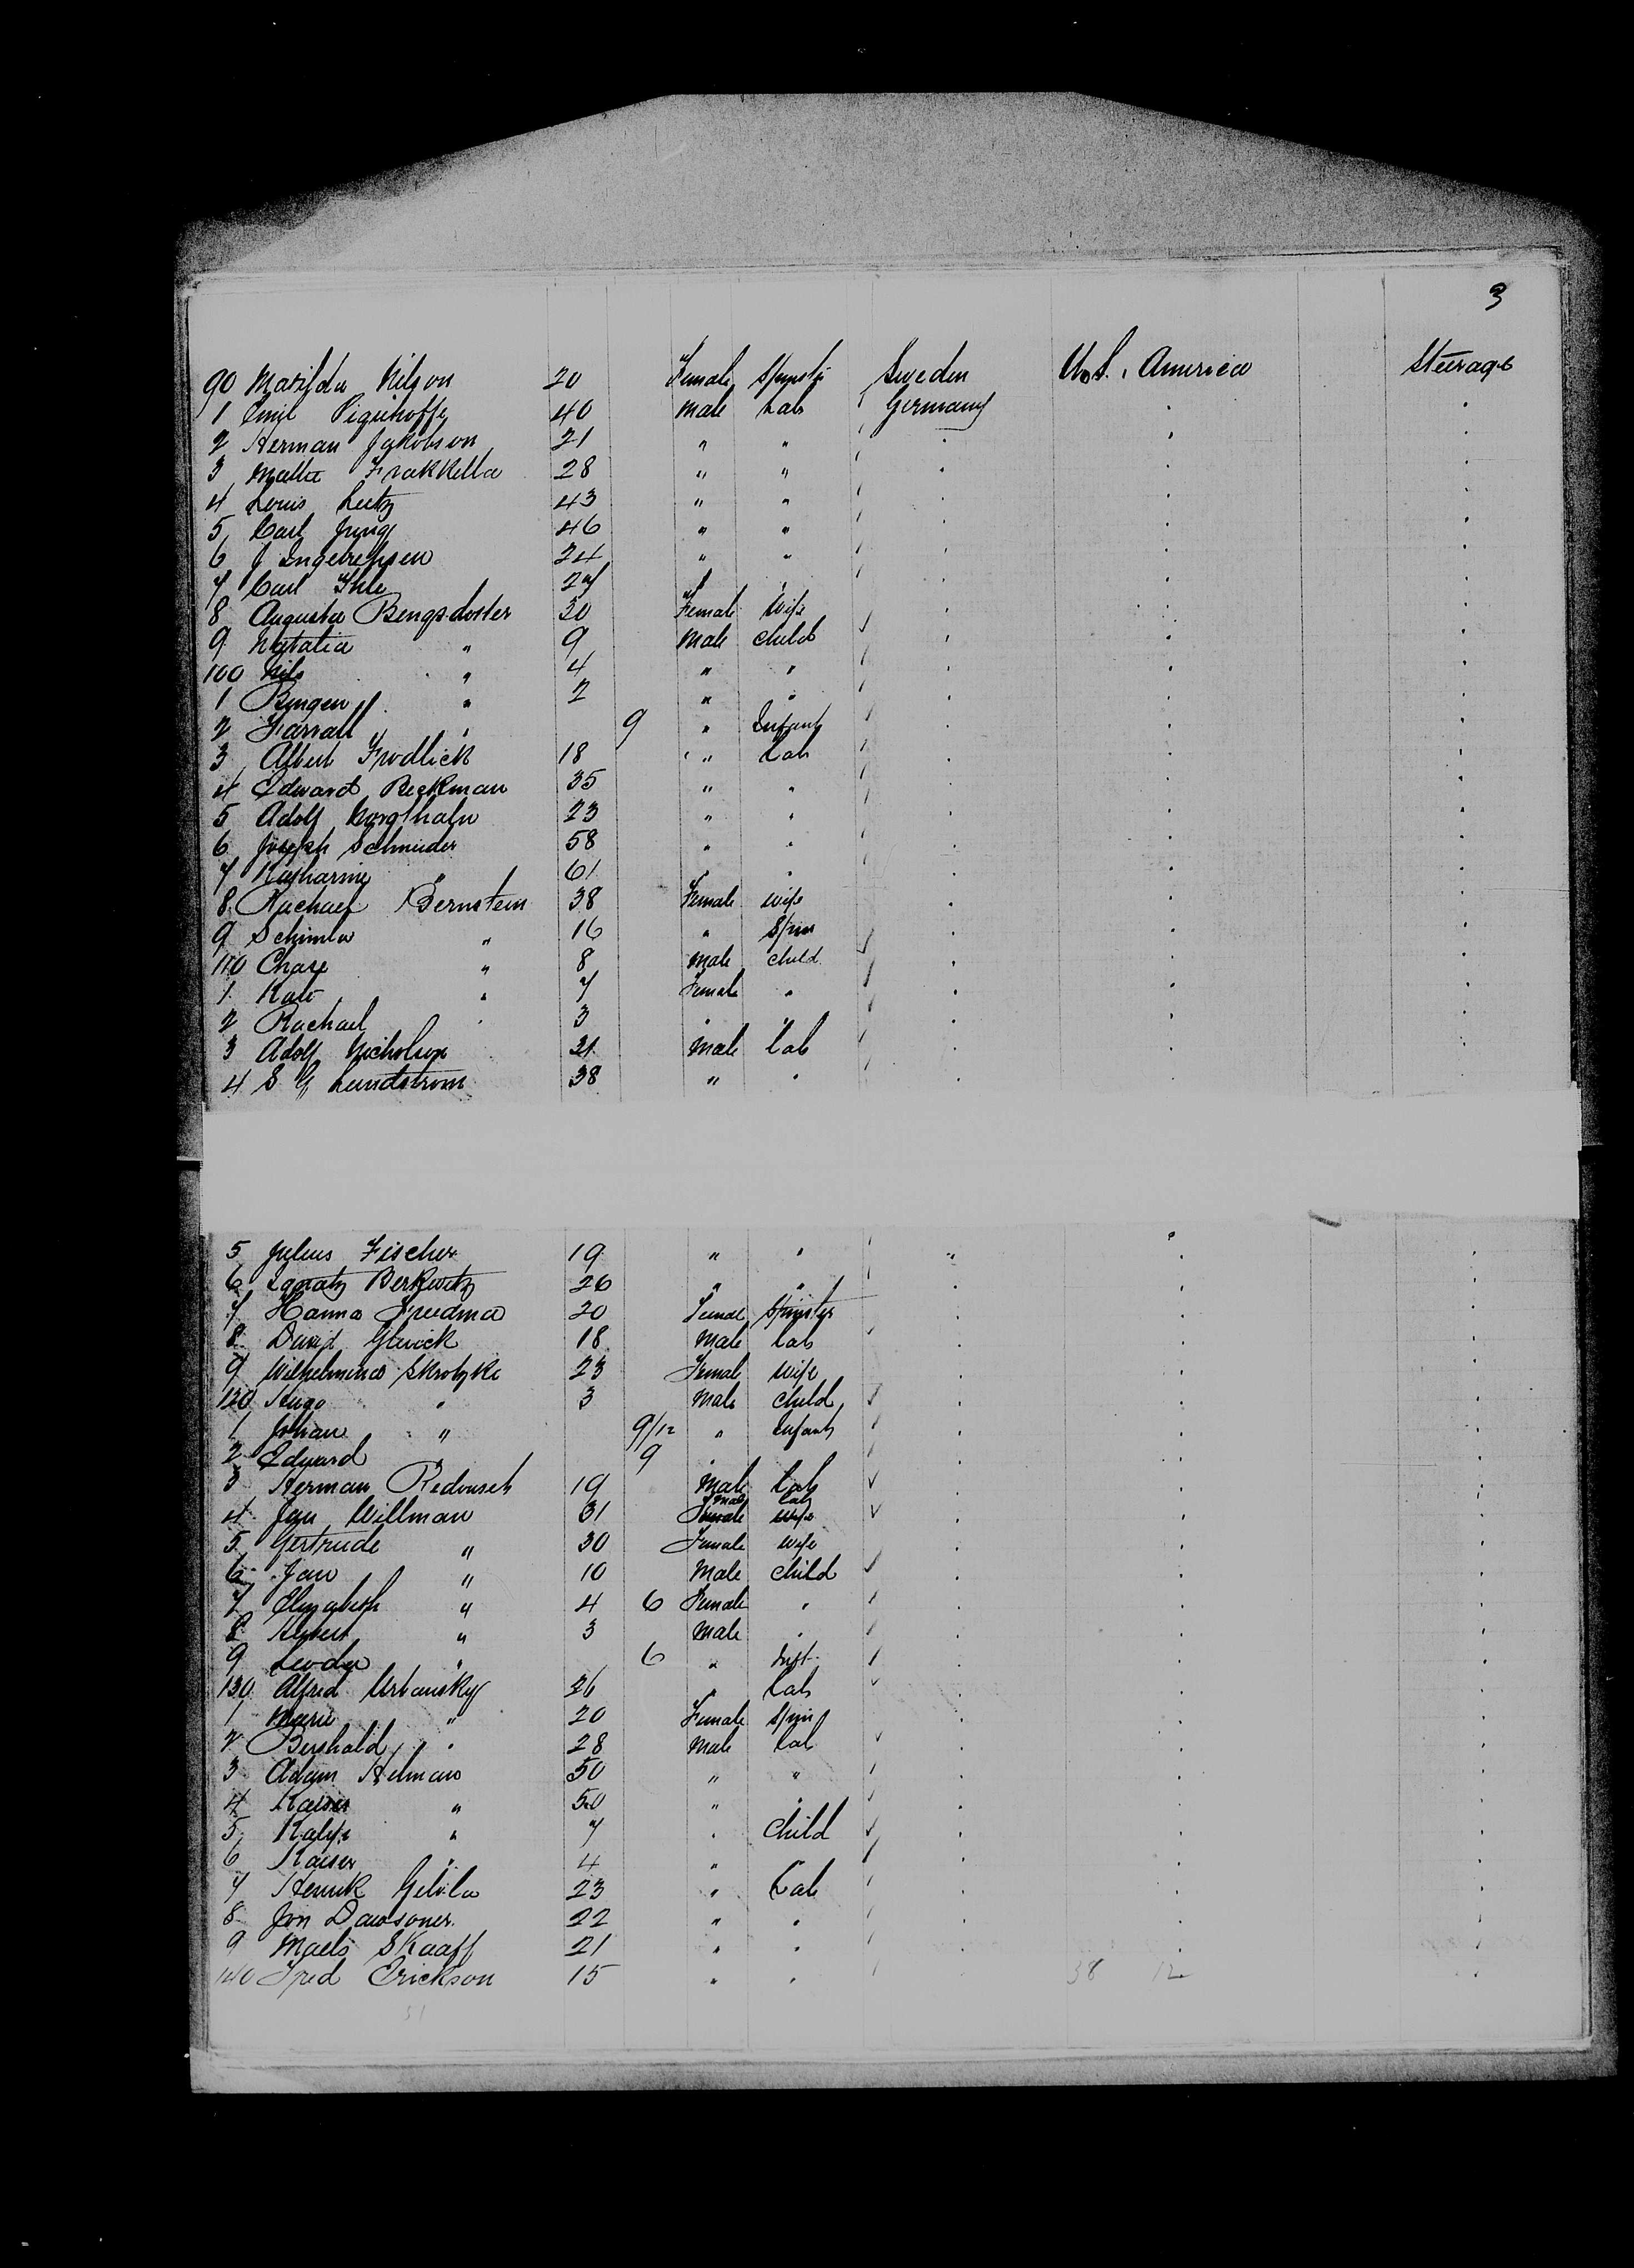 3
90 Matilda Nilson 20 Female Spinster Sweden U.S. America Steerage
1 Emil 40 Male Lab Germany "
2 Herman Jakobson 21 " " " " "
3 Mattie Frakkella 28 " " " " "
4 Louis Lutz 43 " " " " "
5 Carl Jung 46 " " " " "
6 J Ingebretsen 24 " " " " "
7 Carl Ihle 27 " " " " "
8 Augusta Bengsdotter 30 Female Wife " " "
9 Natalia " 9 Male child " " "
100 Nils " 4 " " " " "
1 Bengen " 2 " " " " "
2 " 9 " Infant " " "
3 Albert Frodlick 18 " Lab " " "
4 Edward Beckman 35 " " " " "
5 Adolf 23 " " " " "
6 Joseph Schmieder 58 " " " " "
7 Katharine " 61 " " " " "
8 Rachael Bernstein 38 Female Wife " " "
9 Schimla " 16 " Spin " " "
110 Chase " 8 Male child " " "
1 Kate " 7 Female " " " "
2 Rachael " 3 " " " " "
3 Adolf Nicholson 21 Male Lab " " "
4 S G Lundstrom 38 " " " " "
5 Julius Fischer 19 " " " " "
6 Ignatz Berkowitz 26 " " " " "
7 Hanna Freedma 20 Female Spinster " " "
8 David Gluick 18 Male Lab " " "
9 Wilhelmina Skrotzke 23 Female Wife " " "
120 Hugo " 3 Male Child " " "
1 Johan " 9/12 " Infant " " "
2 Edward " 9 " " " "
3 Herman Redousch 19 Male Lab " " "
4 Jan Willman 31 Male Lab " " "
5 Gertrude " 30 Female Wife " " "
6 Jan " 10 Male Child " " "
7 Elizabeth " 4 6 Female " " " "
8 Albert " 3 Male " " " "
9 " 6 " Inft " " "
130 Alfred Urbansky 26 " Lab " " "
1 Marie " 20 Female Spin " " "
2 Bershald " 28 Male Lab " " "
3 Adam Helman 50 " " " " "
4 " 50 " " " " "
5 " 7 " Child " " "
6 Kaiser " 4 " " " " "
7 Henrik Gebila 23 " Lab " " "
8 Jon Dawsoner 22 " " " " "
9 Maels Skaaff 21 " " " " "
140 Fred Erickson 15 " " " 38 12 "
31